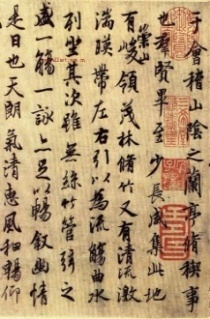 于會稽山陰之蘭亭脩禊事
也羣賢畢至少長咸集此地
有崇山峻領茂林脩竹又有清流激
湍暎帶左右引以為流觴曲水
列坐其次雖無絲竹管弦之
盛一觴一詠亦足以暢敘幽情
是日也天朗氣清惠風和暢仰